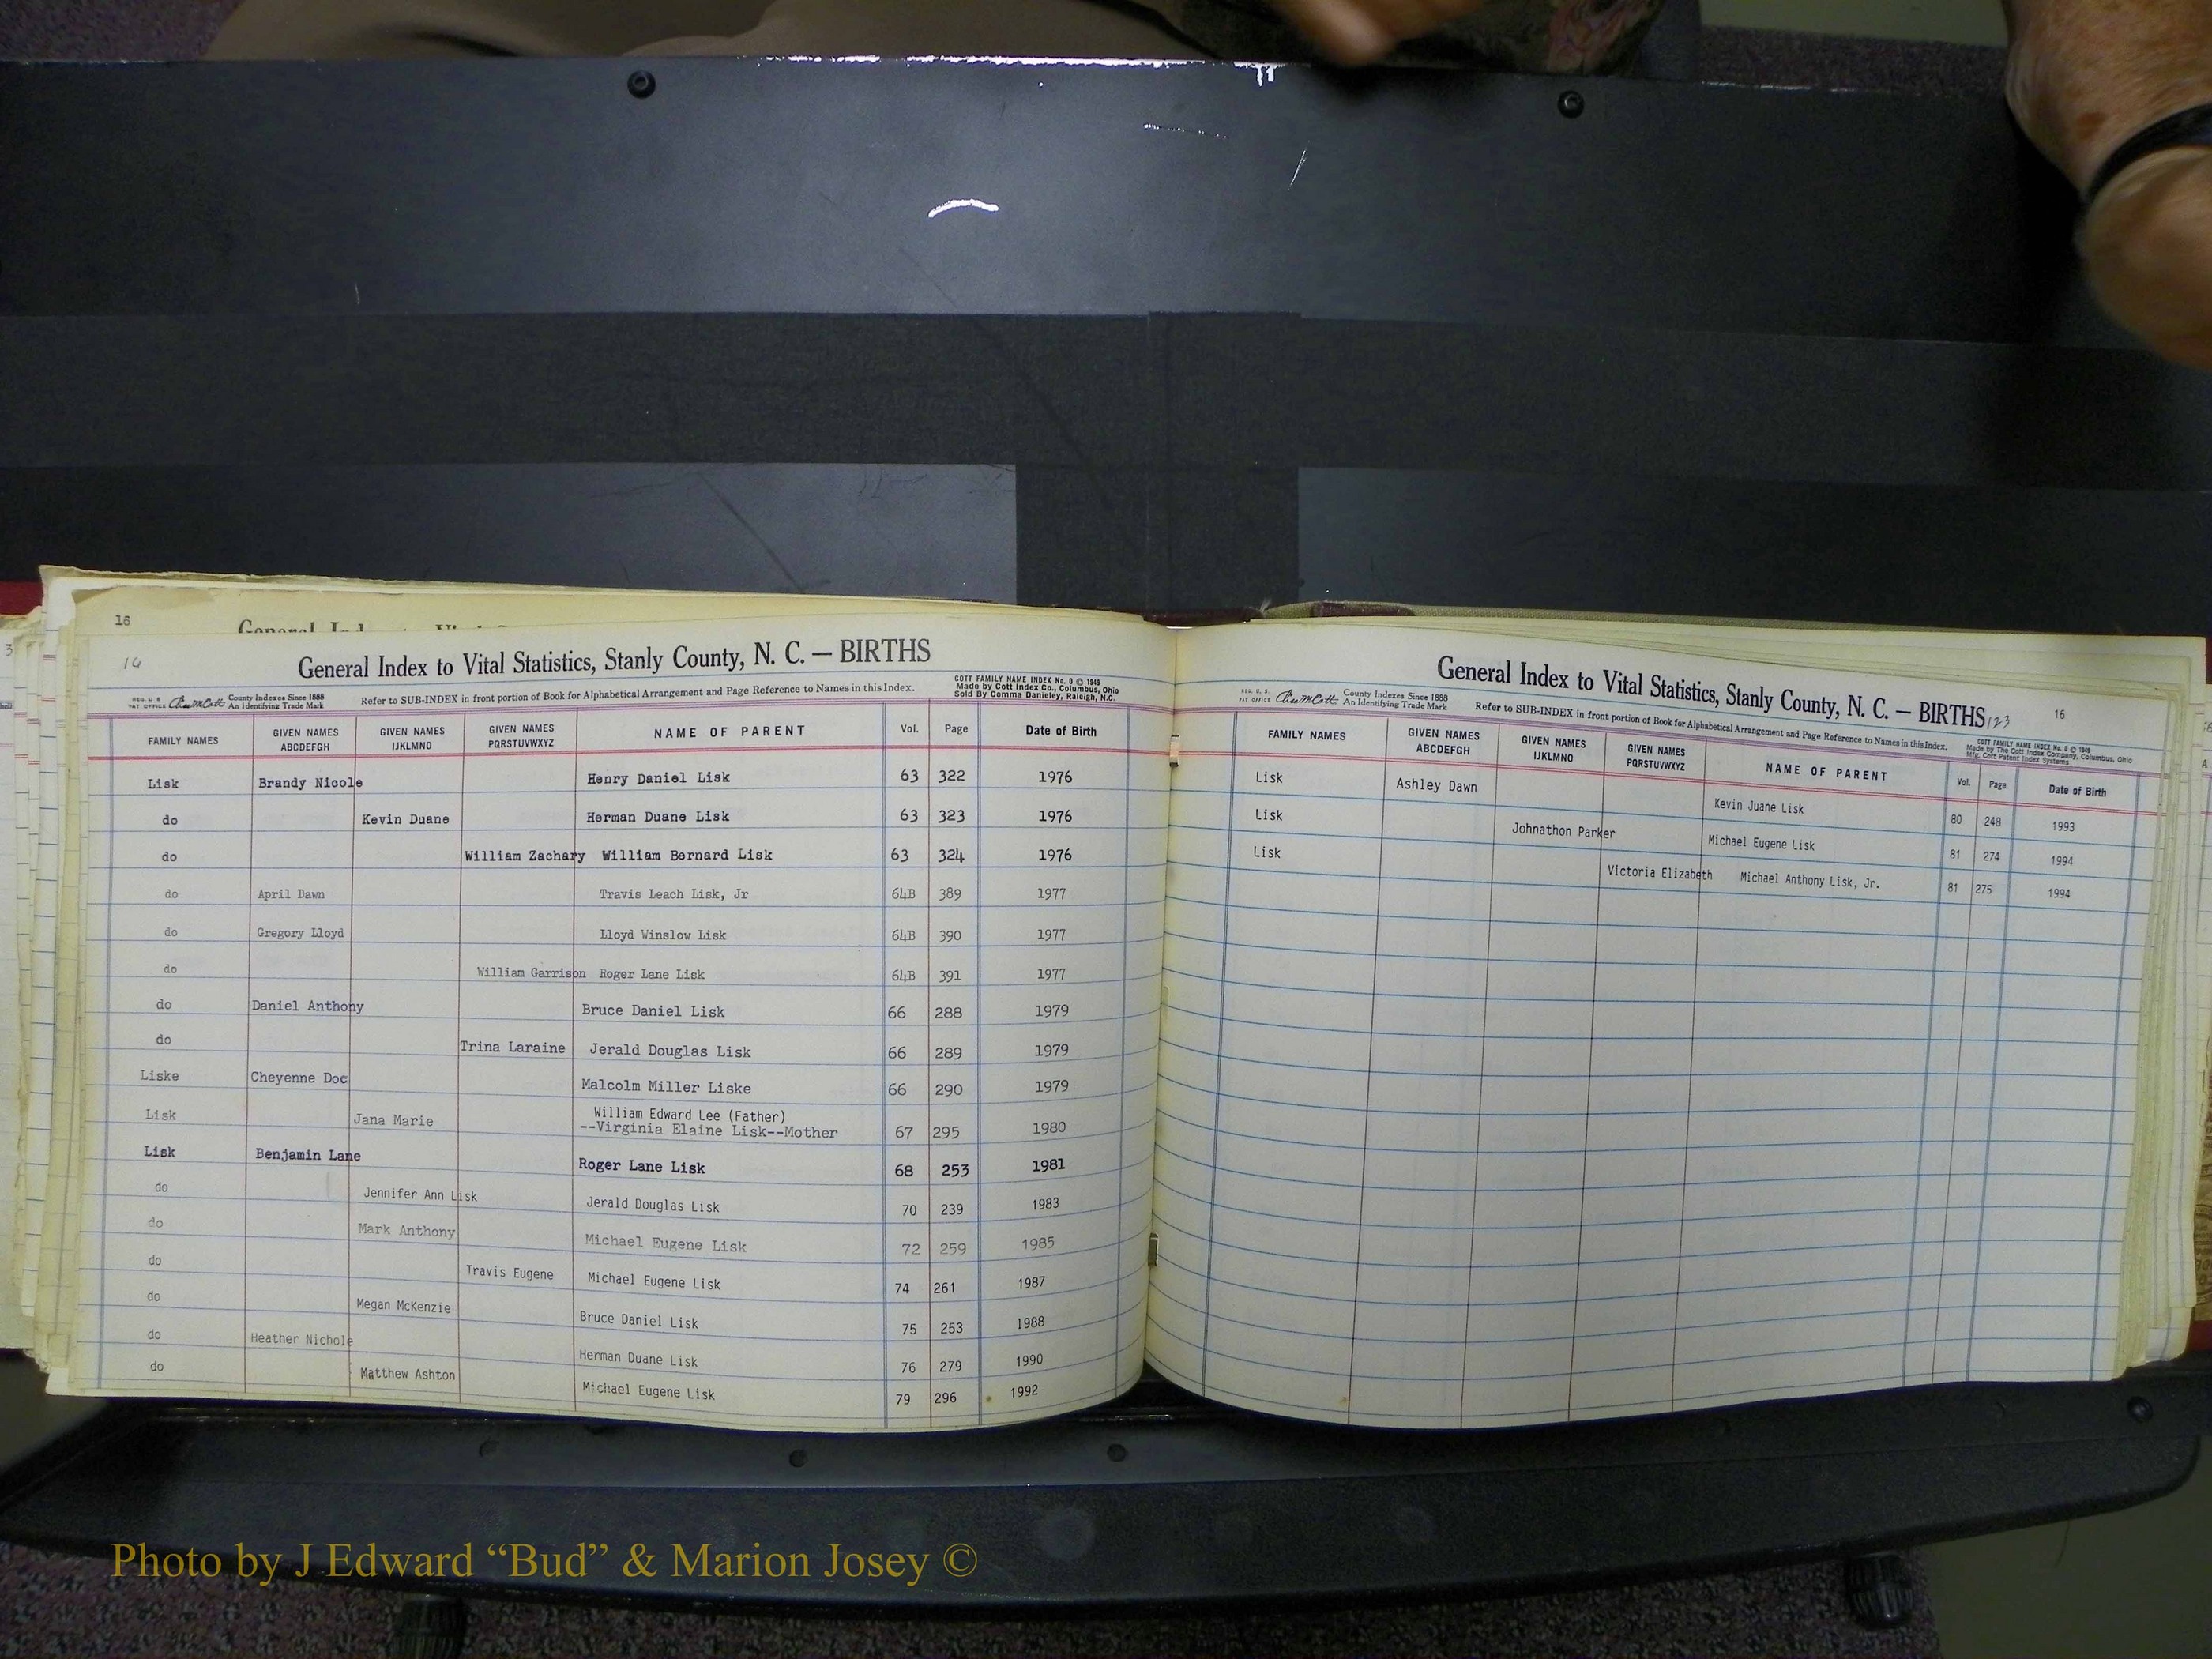 16
General Index to Vital Statistics, Stanly County, N. C. — BIRTHS
REG. U. S. PAT OFFICE County Indexes Since 1888 An Identifying Trade Mark
Refer to SUB-INDEX in front portion of Book for Alphabetical Arrangement and Page Reference to Names in this Index.
COTT FAMILY NAME INDEX No. 0 © 1949
Made by Cott Index Co., Columbus, Ohio
Sold By Comma Danieley, Raleigh, N.C.
FAMILY NAMES GIVEN NAMES ABCDEFGH GIVEN NAMES IJKLMNO GIVEN NAMES PQRSTUVWXYZ NAME OF PARENT Vol. Page Date of Birth
Lisk Brandy Nicole Henry Daniel Lisk 63 322 1976
do Kevin Duane Herman Duane Lisk 63 323 1976
do William Zachary William Bernard Lisk 63 324 1976
do April Dawn Travis Leach Lisk, Jr 64B 389 1977
do Gregory Lloyd Lloyd Winslow Lisk 64B 390 1977
do William Garrison Roger Lane Lisk 64B 391 1977
do Daniel Anthony Bruce Daniel Lisk 66 288 1979
do Trina Laraine Jerald Douglas Lisk 66 289 1979
Liske Cheyenne Doc Malcolm Miller Liske 66 290 1979
Lisk Jana Marie William Edward Lee (Father)
--Virginia Elaine Lisk--Mother 67 295 1980
Lisk Benjamin Lane Roger Lane Lisk 68 253 1981
do Jennifer Ann Lisk Jerald Douglas Lisk 70 239 1983
do Mark Anthony Michael Eugene Lisk 72 259 1985
do Travis Eugene Michael Eugene Lisk 74 261 1987
do Megan McKenzie Bruce Daniel Lisk 75 253 1988
do Heather Nichole Herman Duane Lisk 76 279 1990
do Matthew Ashton Michael Eugene Lisk 79 296 1992
General Index to Vital Statistics, Stanly County, N. C. — BIRTHS 123
16
REG. U. S. PAT OFFICE County Indexes Since 1888 An Identifying Trade Mark
Refer to SUB-INDEX in front portion of Book for Alphabetical Arrangement and Page Reference to Names in this Index.
COTT FAMILY NAME INDEX No. 0 © 1949
Made by The Cott Index Company, Columbus, Ohio
Mfg. Cott Patent Index Systems
FAMILY NAMES GIVEN NAMES ABCDEFGH GIVEN NAMES IJKLMNO GIVEN NAMES PQRSTUVWXYZ NAME OF PARENT Vol. Page Date of Birth
Lisk Ashley Dawn Kevin Juane Lisk 80 248 1993
Lisk Johnathon Parker Michael Eugene Lisk 81 274 1994
Lisk Victoria Elizabeth Michael Anthony Lisk, Jr. 81 275 1994
Photo by J Edward “Bud” & Marion Josey ©